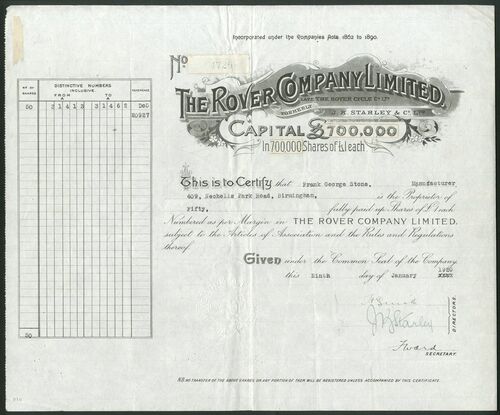 Incorporated under the Companies Acts 1862 to 1890.
No
THE ROVER COMPANY LIMITED.
LATE THE ROVER CYCLE Co LTD
FORMERLY
J. K. STARLEY & Co LTD
CAPITAL £700,000
In 700,000 Shares of £1 each
No OF SHARES
DISTINCTIVE NUMBERS INCLUSIVE.
FROM TO
50
This is to Certify that Frank George Stone, Manufacturer
409, Nechells Park Road, Birmingham, is the Proprietor of
Fifty, fully paid up Shares of £1 each
Numbered as per Margin in THE ROVER COMPANY LIMITED.
subject to the Articles of Association and the Rules and Regulations
thereof.
Given under the Common Seal of the Company
this Ninth day of January 1920
J K Starley
DIRECTORS.
FWard
SECRETARY.
50
N.B. NO TRANSFER OF THE ABOVE SHARES OR ANY PORTION OF THEM WILL BE REGISTERED UNLESS ACCOMPANIED BY THIS CERTIFICATE.